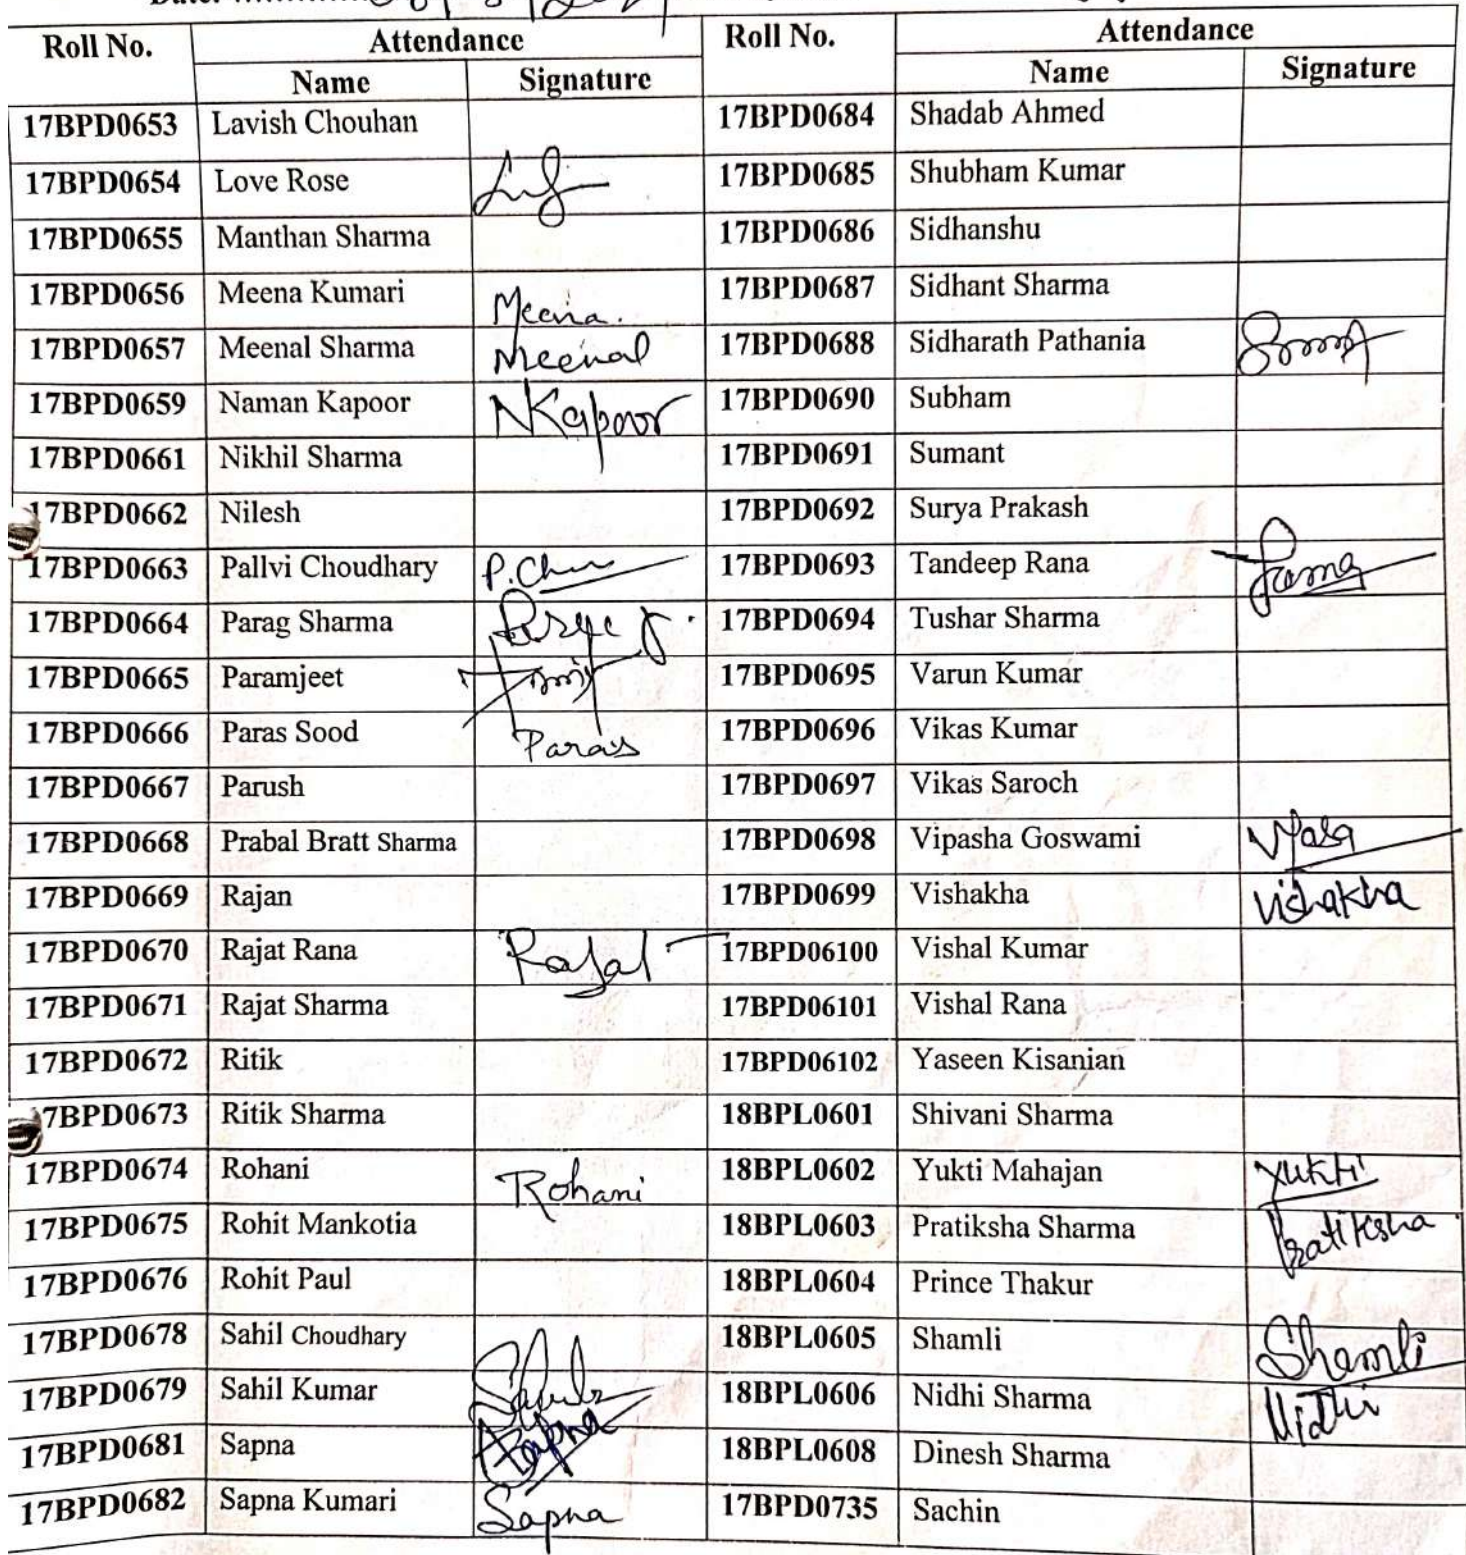 Date:
Roll No. Attendance Roll No. Attendance
Name Signature Name Signature
17BPD0653 Lavish Chouhan 17BPD0684 Shadab Ahmed
17BPD0654 Love Rose 17BPD0685 Shubham Kumar
17BPD0655 Manthan Sharma 17BPD0686 Sidhanshu
17BPD0656 Meena Kumari Meena. 17BPD0687 Sidhant Sharma
17BPD0657 Meenal Sharma Meenal 17BPD0688 Sidharath Pathania
17BPD0659 Naman Kapoor NKapoor 17BPD0690 Subham
17BPD0661 Nikhil Sharma 17BPD0691 Sumant
17BPD0662 Nilesh 17BPD0692 Surya Prakash
17BPD0663 Pallvi Choudhary 17BPD0693 Tandeep Rana
17BPD0664 Parag Sharma 17BPD0694 Tushar Sharma
17BPD0665 Paramjeet 17BPD0695 Varun Kumar
17BPD0666 Paras Sood Paras 17BPD0696 Vikas Kumar
17BPD0667 Parush 17BPD0697 Vikas Saroch
17BPD0668 Prabal Bratt Sharma 17BPD0698 Vipasha Goswami
17BPD0669 Rajan 17BPD0699 Vishakha Vishakha
17BPD0670 Rajat Rana Rajat 17BPD06100 Vishal Kumar
17BPD0671 Rajat Sharma 17BPD06101 Vishal Rana
17BPD0672 Ritik 17BPD06102 Yaseen Kisanian
7BPD0673 Ritik Sharma 18BPL0601 Shivani Sharma
17BPD0674 Rohani Rohani 18BPL0602 Yukti Mahajan Yukti
17BPD0675 Rohit Mankotia 18BPL0603 Pratiksha Sharma Pratiksha
17BPD0676 Rohit Paul 18BPL0604 Prince Thakur
17BPD0678 Sahil Choudhary 18BPL0605 Shamli Shamli
17BPD0679 Sahil Kumar 18BPL0606 Nidhi Sharma Nidhi
17BPD0681 Sapna Sapna 18BPL0608 Dinesh Sharma
17BPD0682 Sapna Kumari Sapna 17BPD0735 Sachin